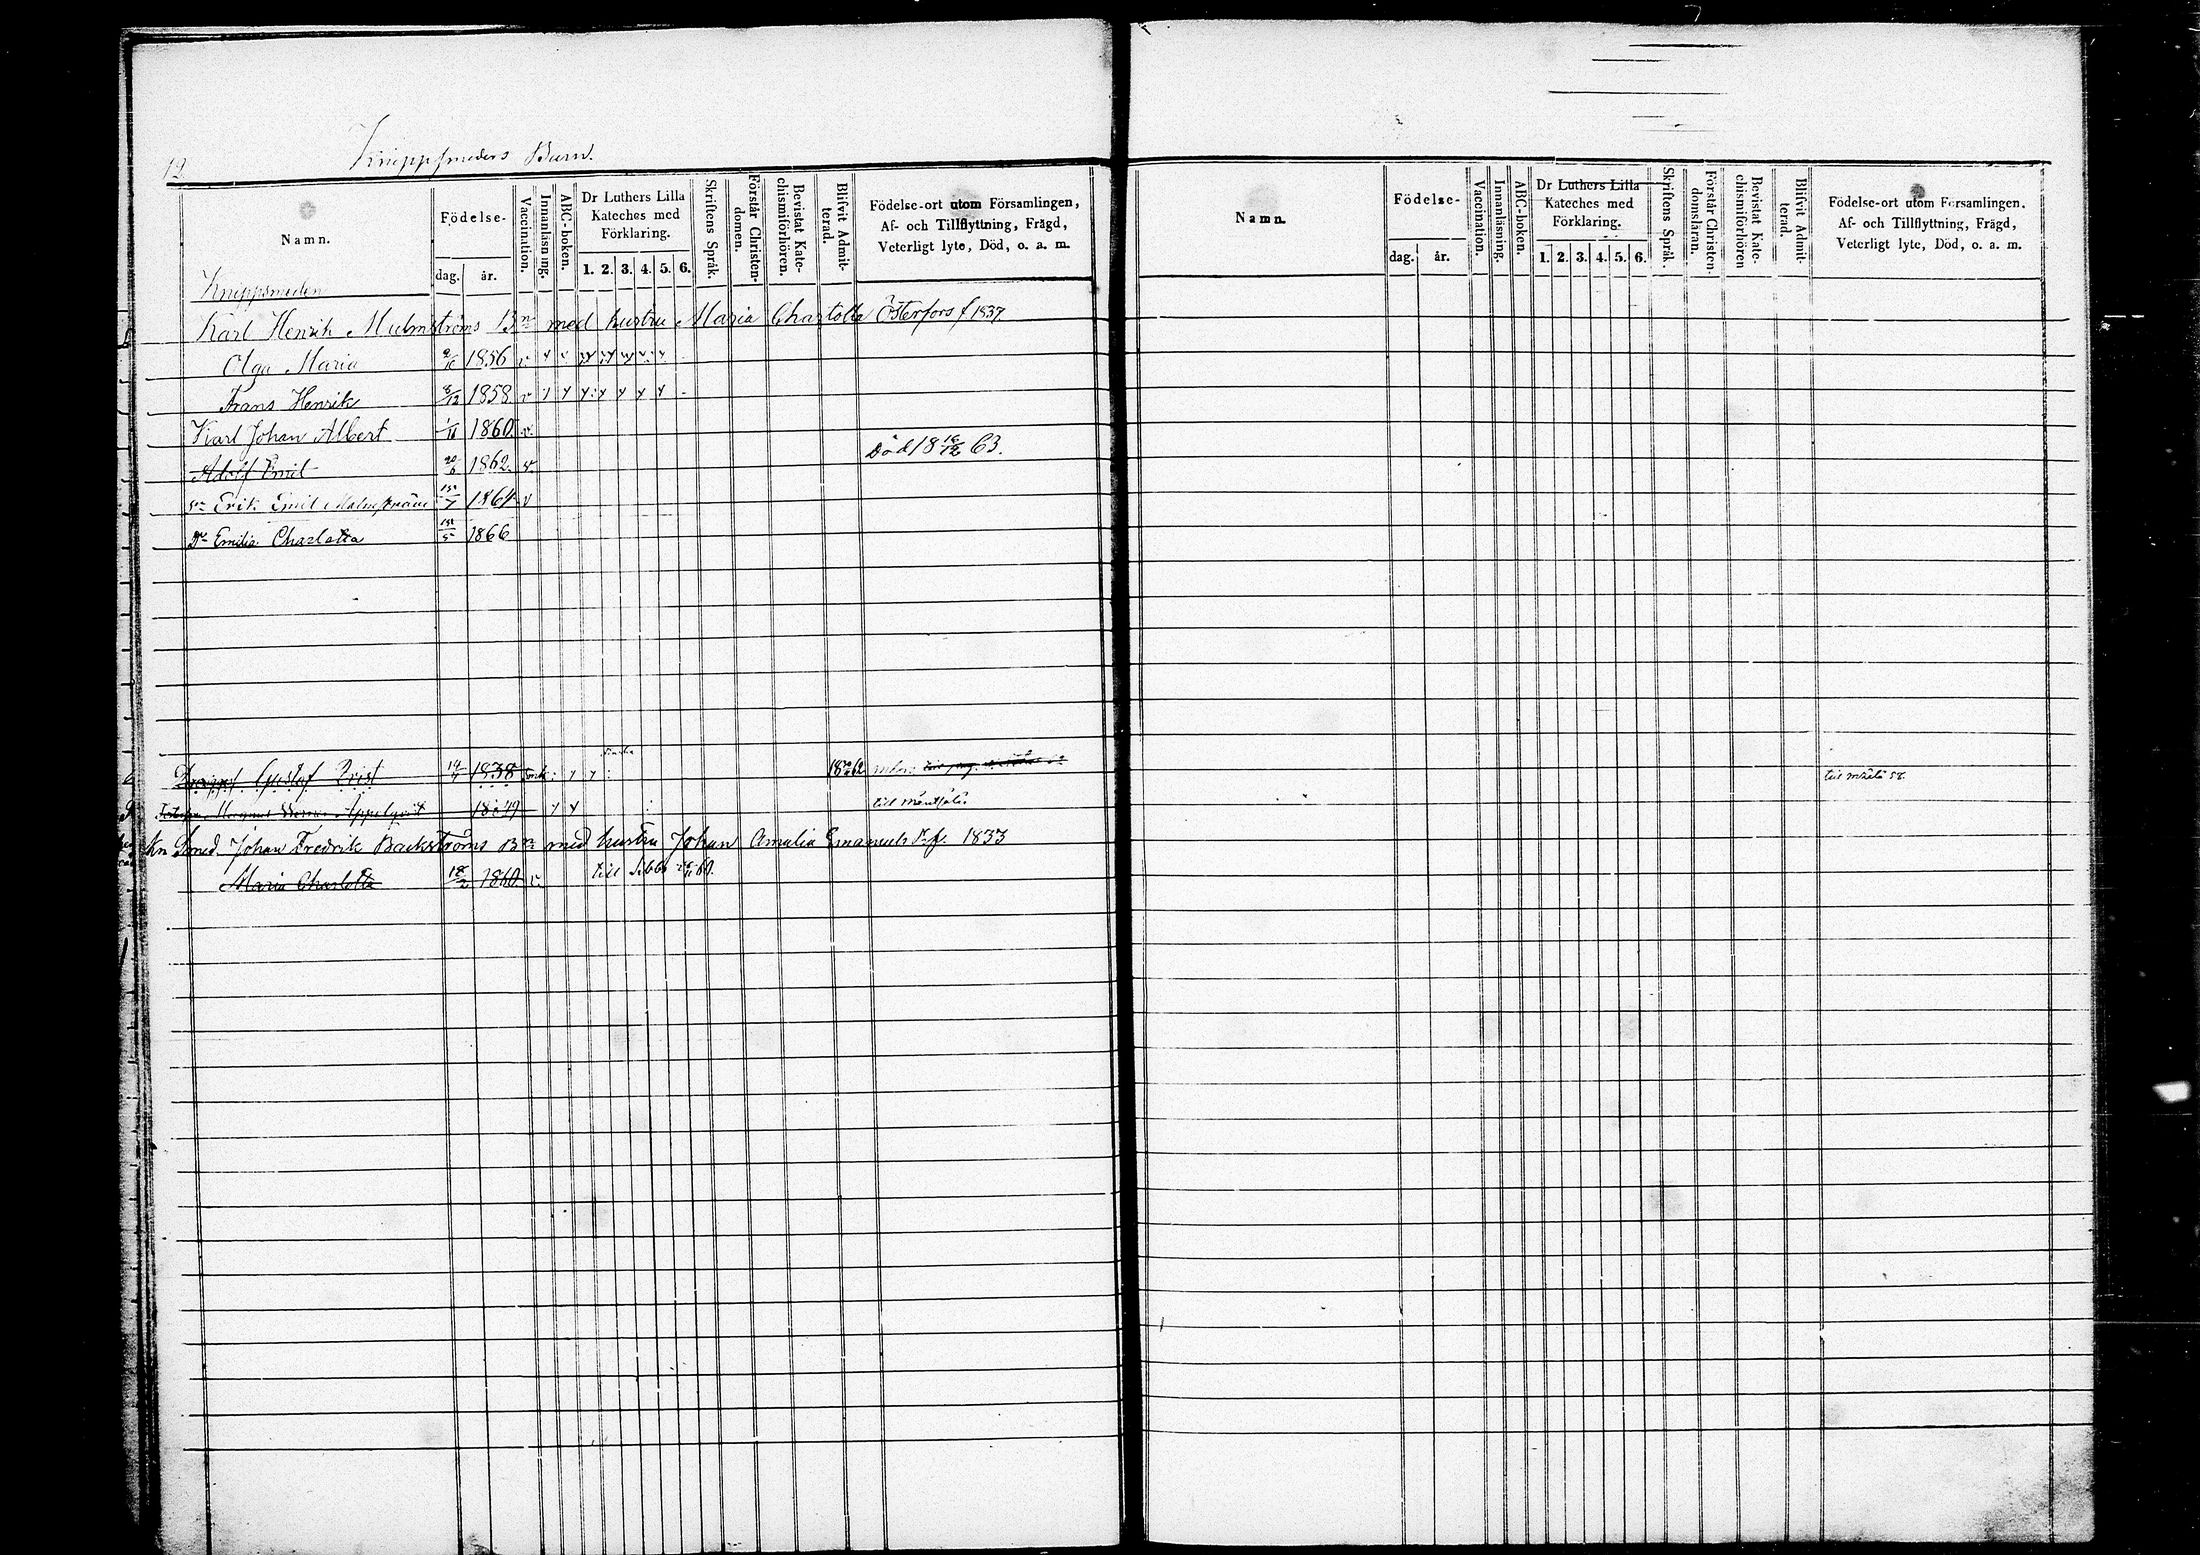 12. Knippsmeders Barn.
Namn. Födelse- dag. år. Vaccination. Innanläsning. ABC-boken. Dr Luthers Lilla Kateches med Förklaring. 1. 2. 3. 4. 5. 6. Skriftens Språk. Förstår Christen-domen. Bevistat Kate-chismiförhören. Blifvit Admit-terad. Födelse-ort utom Församlingen, Af- och Tillflyttning, Frägd, Veterligt lyte, Död, o. a. m.
Knippsmeden
Karl Henrik Malmströms Bn med hustru Maria Charlotta Österfors f 1837
Olga Maria 1856 v
Frans Henrik 8/12 1858 v
Karl Johan Albert 1860 v.
Adolf Emil 20/6 1862. v. Död 18 63.
Sn Erik Emil Malmström 1864 v
Dr Emilia Charlotta 1866
Gustaf Qvist 14/4 1838 18 62
Magnus Werner Appelqvist 1849 till Mäntsälä
Kn Smed. Johan Fredrik Backströms Bn med hustru Johan Amalia Emanuels Dr f. 1833
Maria Charlotta 18/2 1860 v. till Sibbo 60.
Namn. Födelse- dag. år. Vaccination. Innanläsning. ABC-boken. Dr Luthers Lilla Kateches med Förklaring. 1. 2. 3. 4. 5. 6. Skriftens Språk. Förstår Christen-domsläran. Bevistat Kate-chismiförhören Blifvit Admit-terad. Födelse-ort utom Församlingen. Af- och Tillflyttning, Frägd, Veterligt lyte, Död, o. a. m.